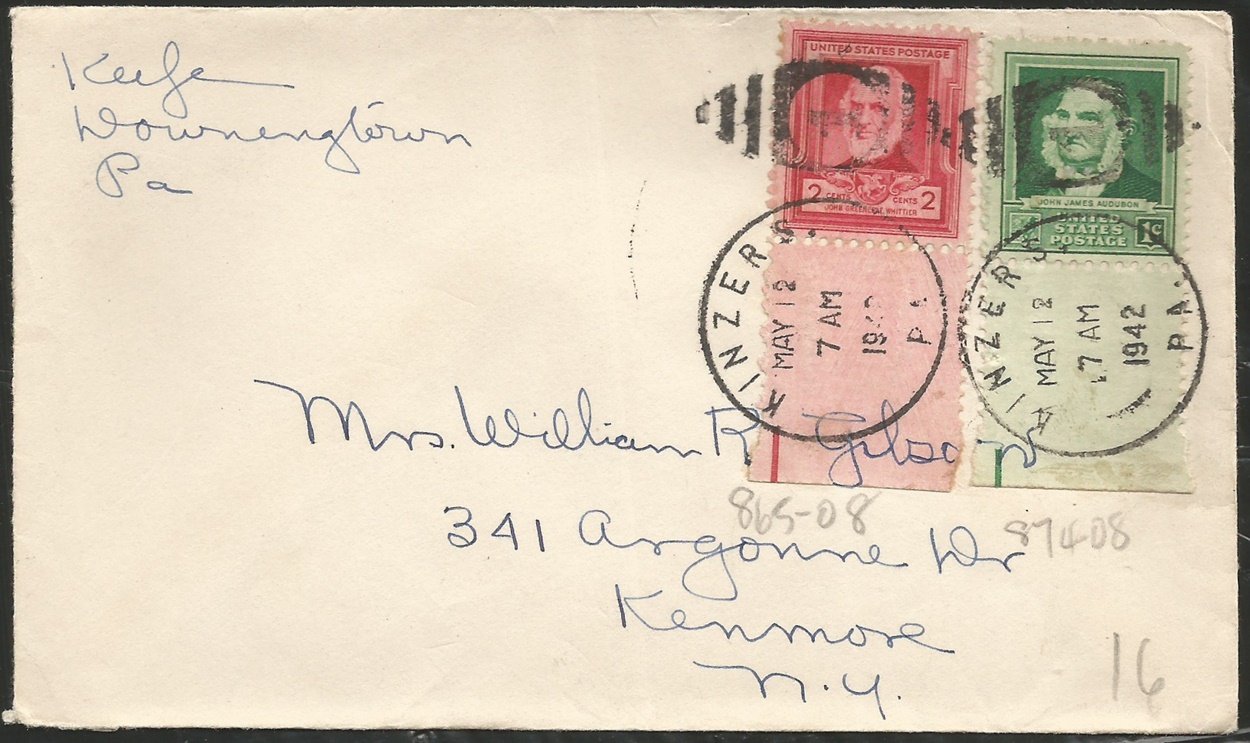 Keefe
Downengtown
Pa
UNITED STATES POSTAGE
2 CENTS CENTS 2
JOHN GREENLEAF WHITTIER
JOHN JAMES AUDUBON
UNITED
STATES
POSTAGE
1¢
KINZERS. PA.
MAY 12
7 AM
1942
KINZERS. PA.
MAY 12
7 AM
1942
Mrs. William R Gibson
341 Argonne Dr
Kenmore
N.Y.
865-08
874-08
16